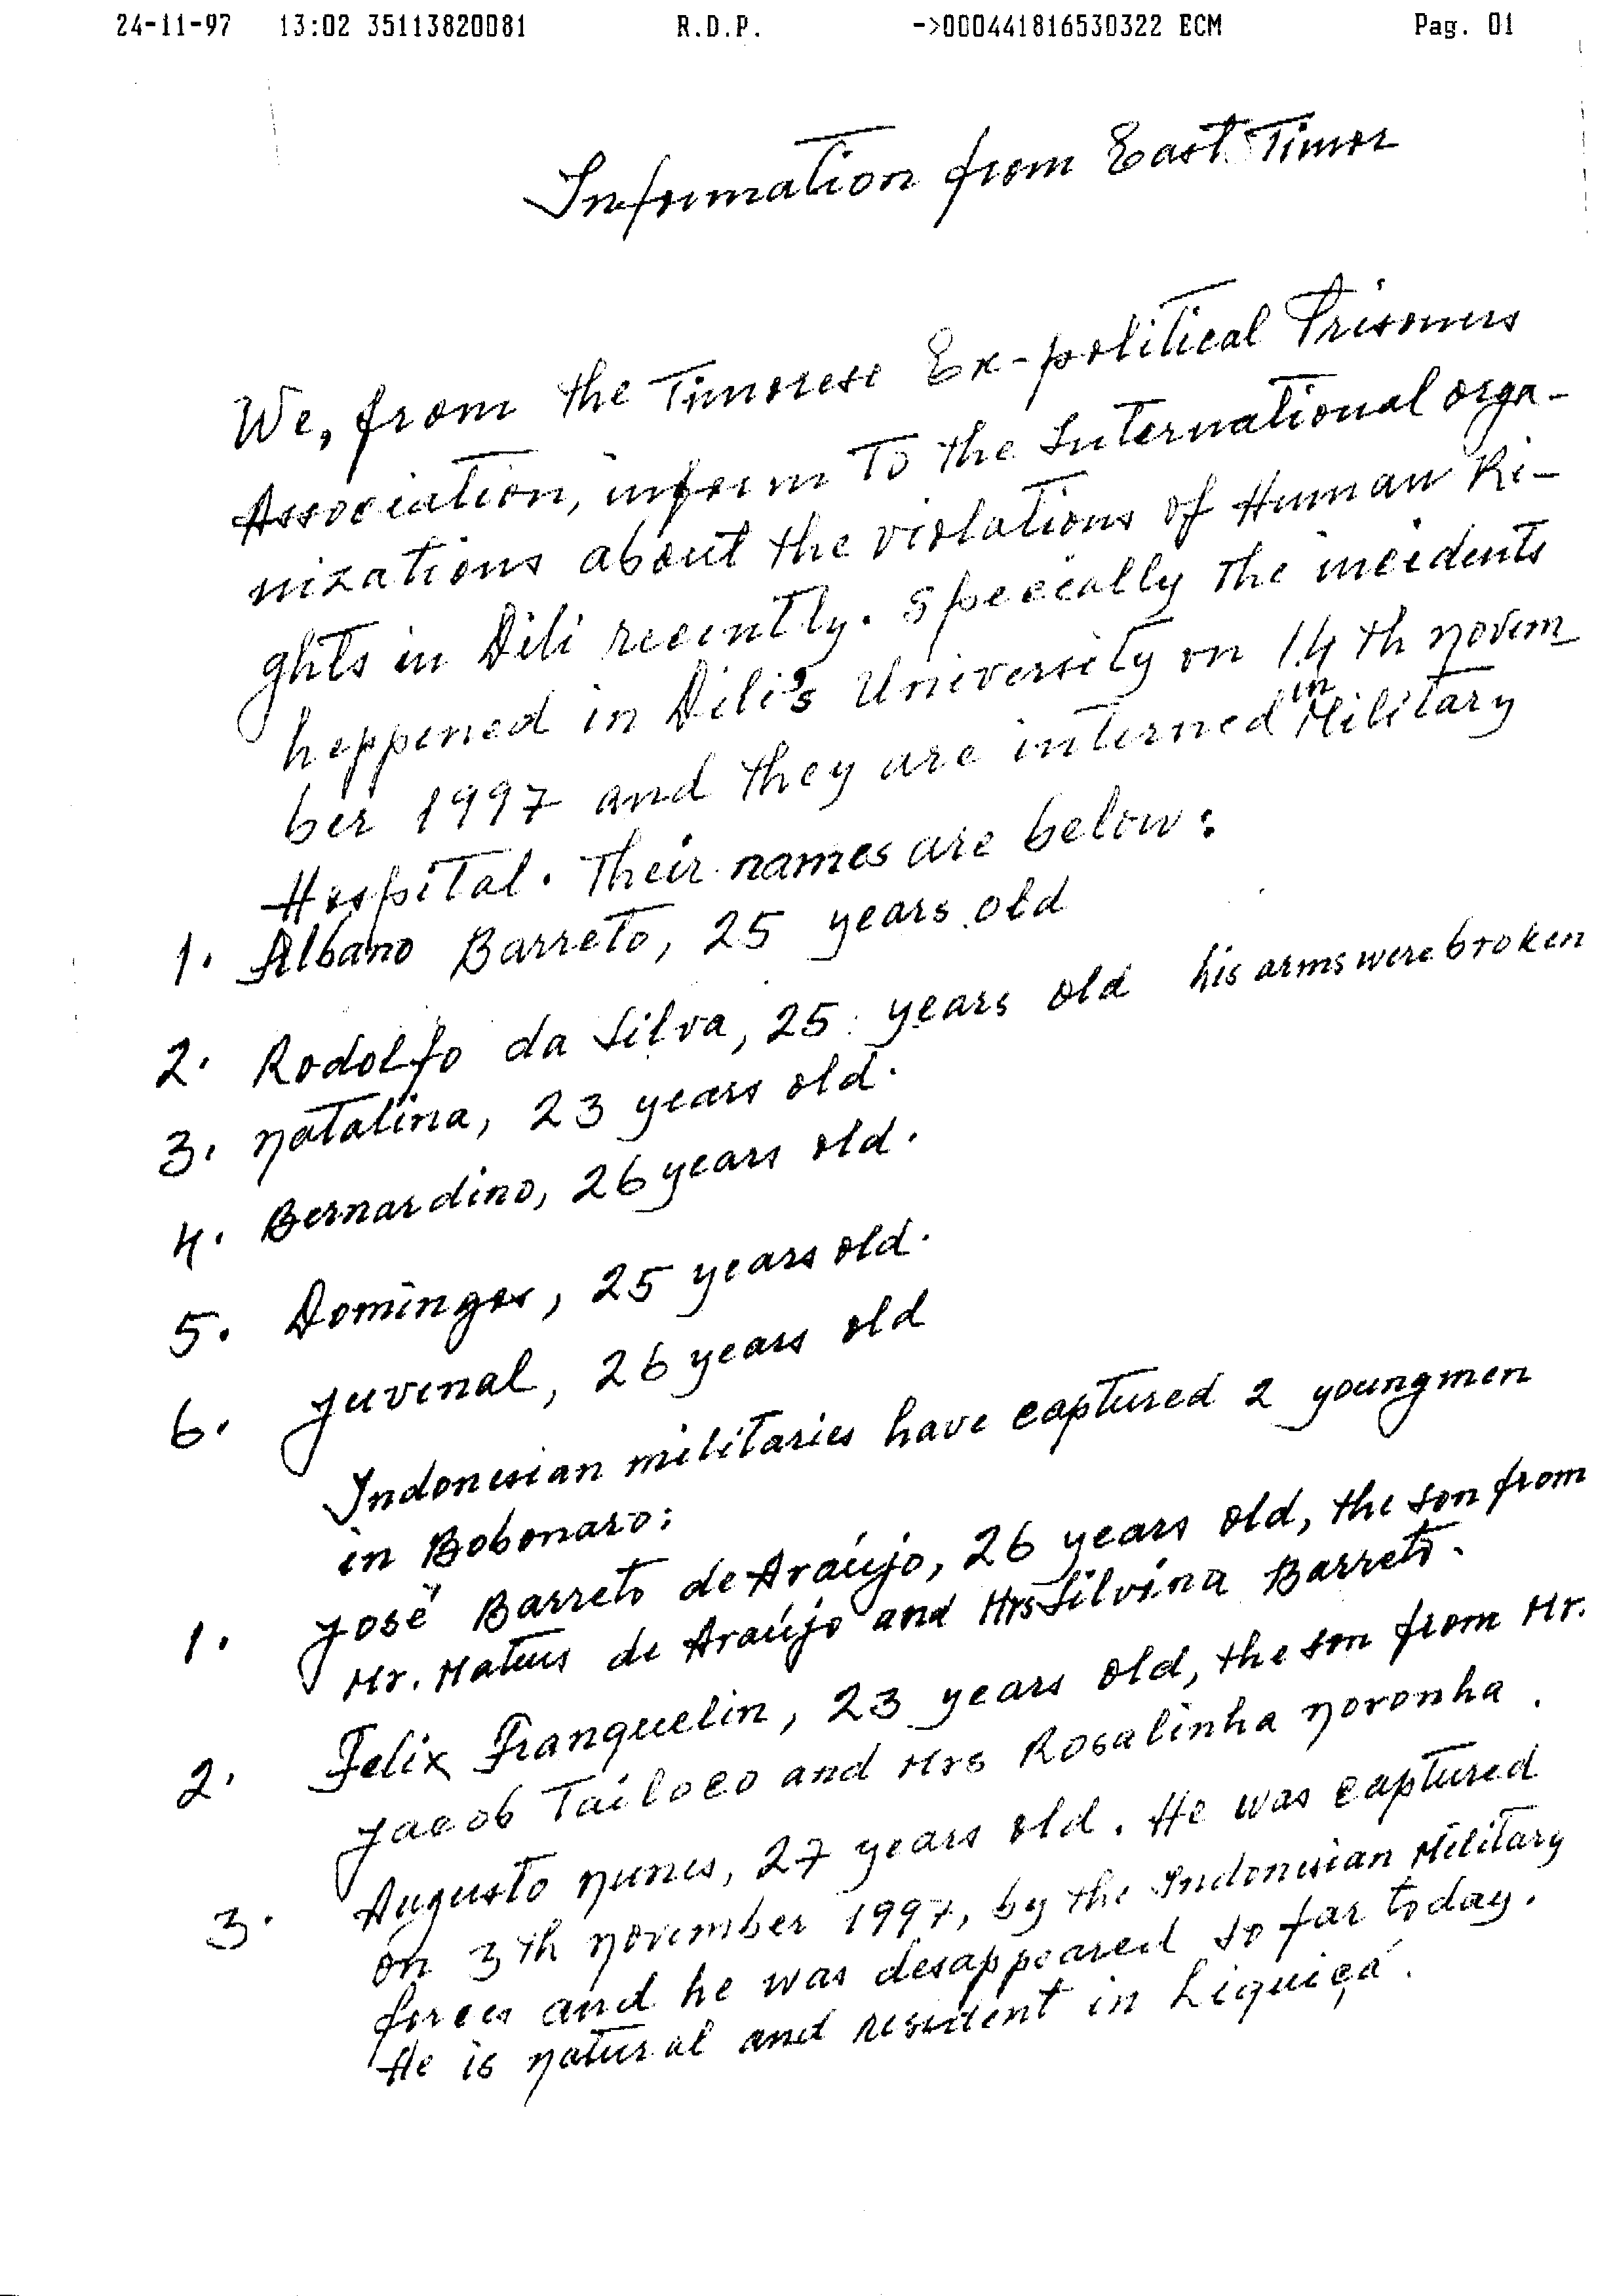 24-11-97 13:02 35113820081 R.D.P. ->000441816530322 ECM Pag. 01
Information from East Timor
We, from the Timorese Ex-political Prisoners
Association, inform to the International orga-
nizations about the violations of Human Ri-
ghts in Dili recently. Specially the incidents
heppened in Dili's University on 14th novem
ber 1997 and they are interned in Military
Hospital. Their names are below:
1. Albano Barreto, 25 years old
2. Rodolfo da Silva, 25 years old his arms were broken
3. Natalina, 23 years old.
4. Bernardino, 26 years old.
5. Domingos, 25 years old.
6. Juvenal, 26 years old
Indonesian militaries have captured 2 youngmen
in Bobonaro:
1. José Barreto de Araújo, 26 years old, the son from
Mr. Mateus de Araújo and Mrs Silvina Barreto.
2. Felix Franquelin, 23 years old, the son from Mr.
Jacob Tailoco and Mrs Rosalinha Noronha.
3. Augusto Nunes, 27 years old. He was captured
on 3th November 1997, by the Indonesian Military
forces and he was desappeared so far today.
He is natural and resident in Liquiçá.